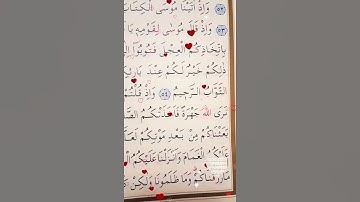 ﴿٥٢﴾ وَإِذْ آتَيْنَا مُوسَى الْكِتَا
﴿٥٣﴾ وَإِذْ قَالَ مُوسَى لِقَوْمِهِ يَا
بِاتِّخَاذِكُمُ الْعِجْلَ فَتُوبُوا إِلَى
ذَلِكُمْ خَيْرٌ لَكُمْ عِنْدَ بَارِئِكُمْ
التَّوَّابُ الرَّحِيمُ ﴿٥٤﴾ وَإِذْ قُلْتُمْ
نَرَى اللَّهَ جَهْرَةً فَأَخَذَتْكُمُ الصَّا
بَعَثْنَاكُمْ مِنْ بَعْدِ مَوْتِكُمْ لَعَلَّ
عَلَيْكُمُ الْغَمَامَ وَأَنْزَلْنَا عَلَيْكُمُ الْ
مَا رَزَقْنَاكُمْ وَمَا ظَلَمُونَا وَلَكِنْ